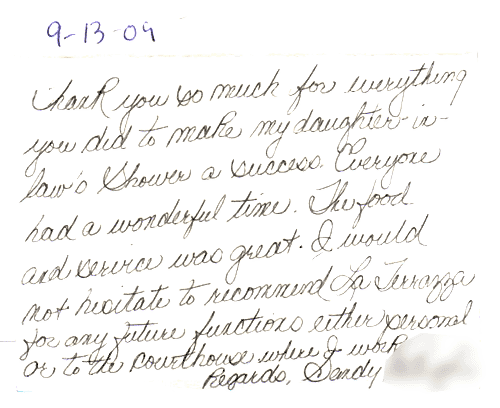 9-13-09
Thank you so much for everything
you did to make my daughter-in-
law's Shower a success. Everyone
had a wonderful time. The food
and service was great. I would
not hesitate to recommend La Terrazza
for any future functions either personal
or to the courthouse where I work
Regards, Sandy